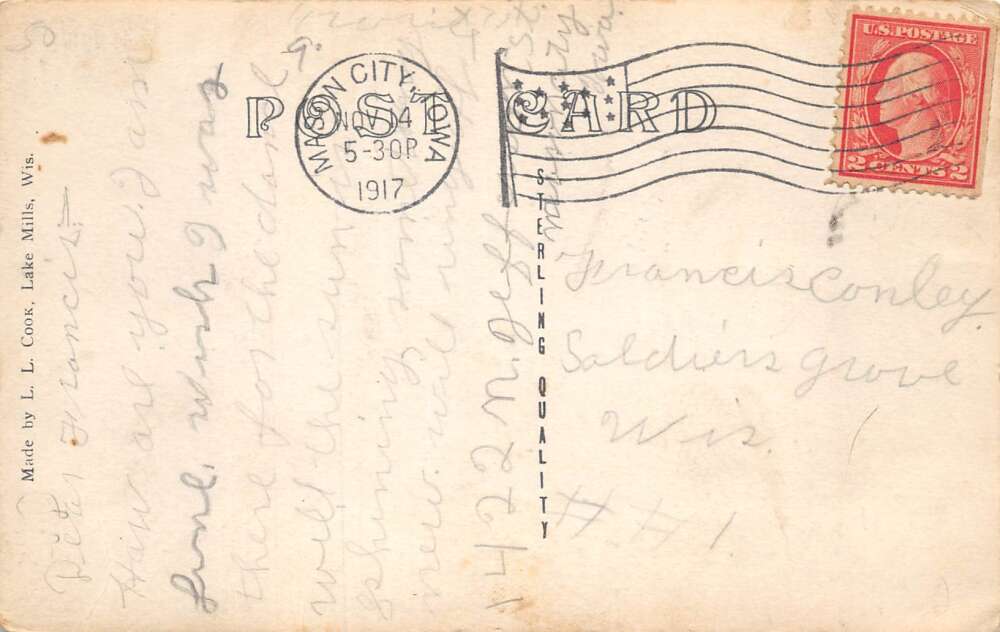 POST CARD
MASON CITY, IOWA
NOV 14
5-30P
1917
U.S. POSTAGE
2 CENTS 2
Made by L. L. COOK, Lake Mills, Wis.
STERLING QUALITY
Francis Conley
Soldiers Grove
Wis.
# #1
Francis
How are you, I am
fine, wish I was
there for the dance
well the sun is
shining
well
1422 N. Jeff St.
Iowa.